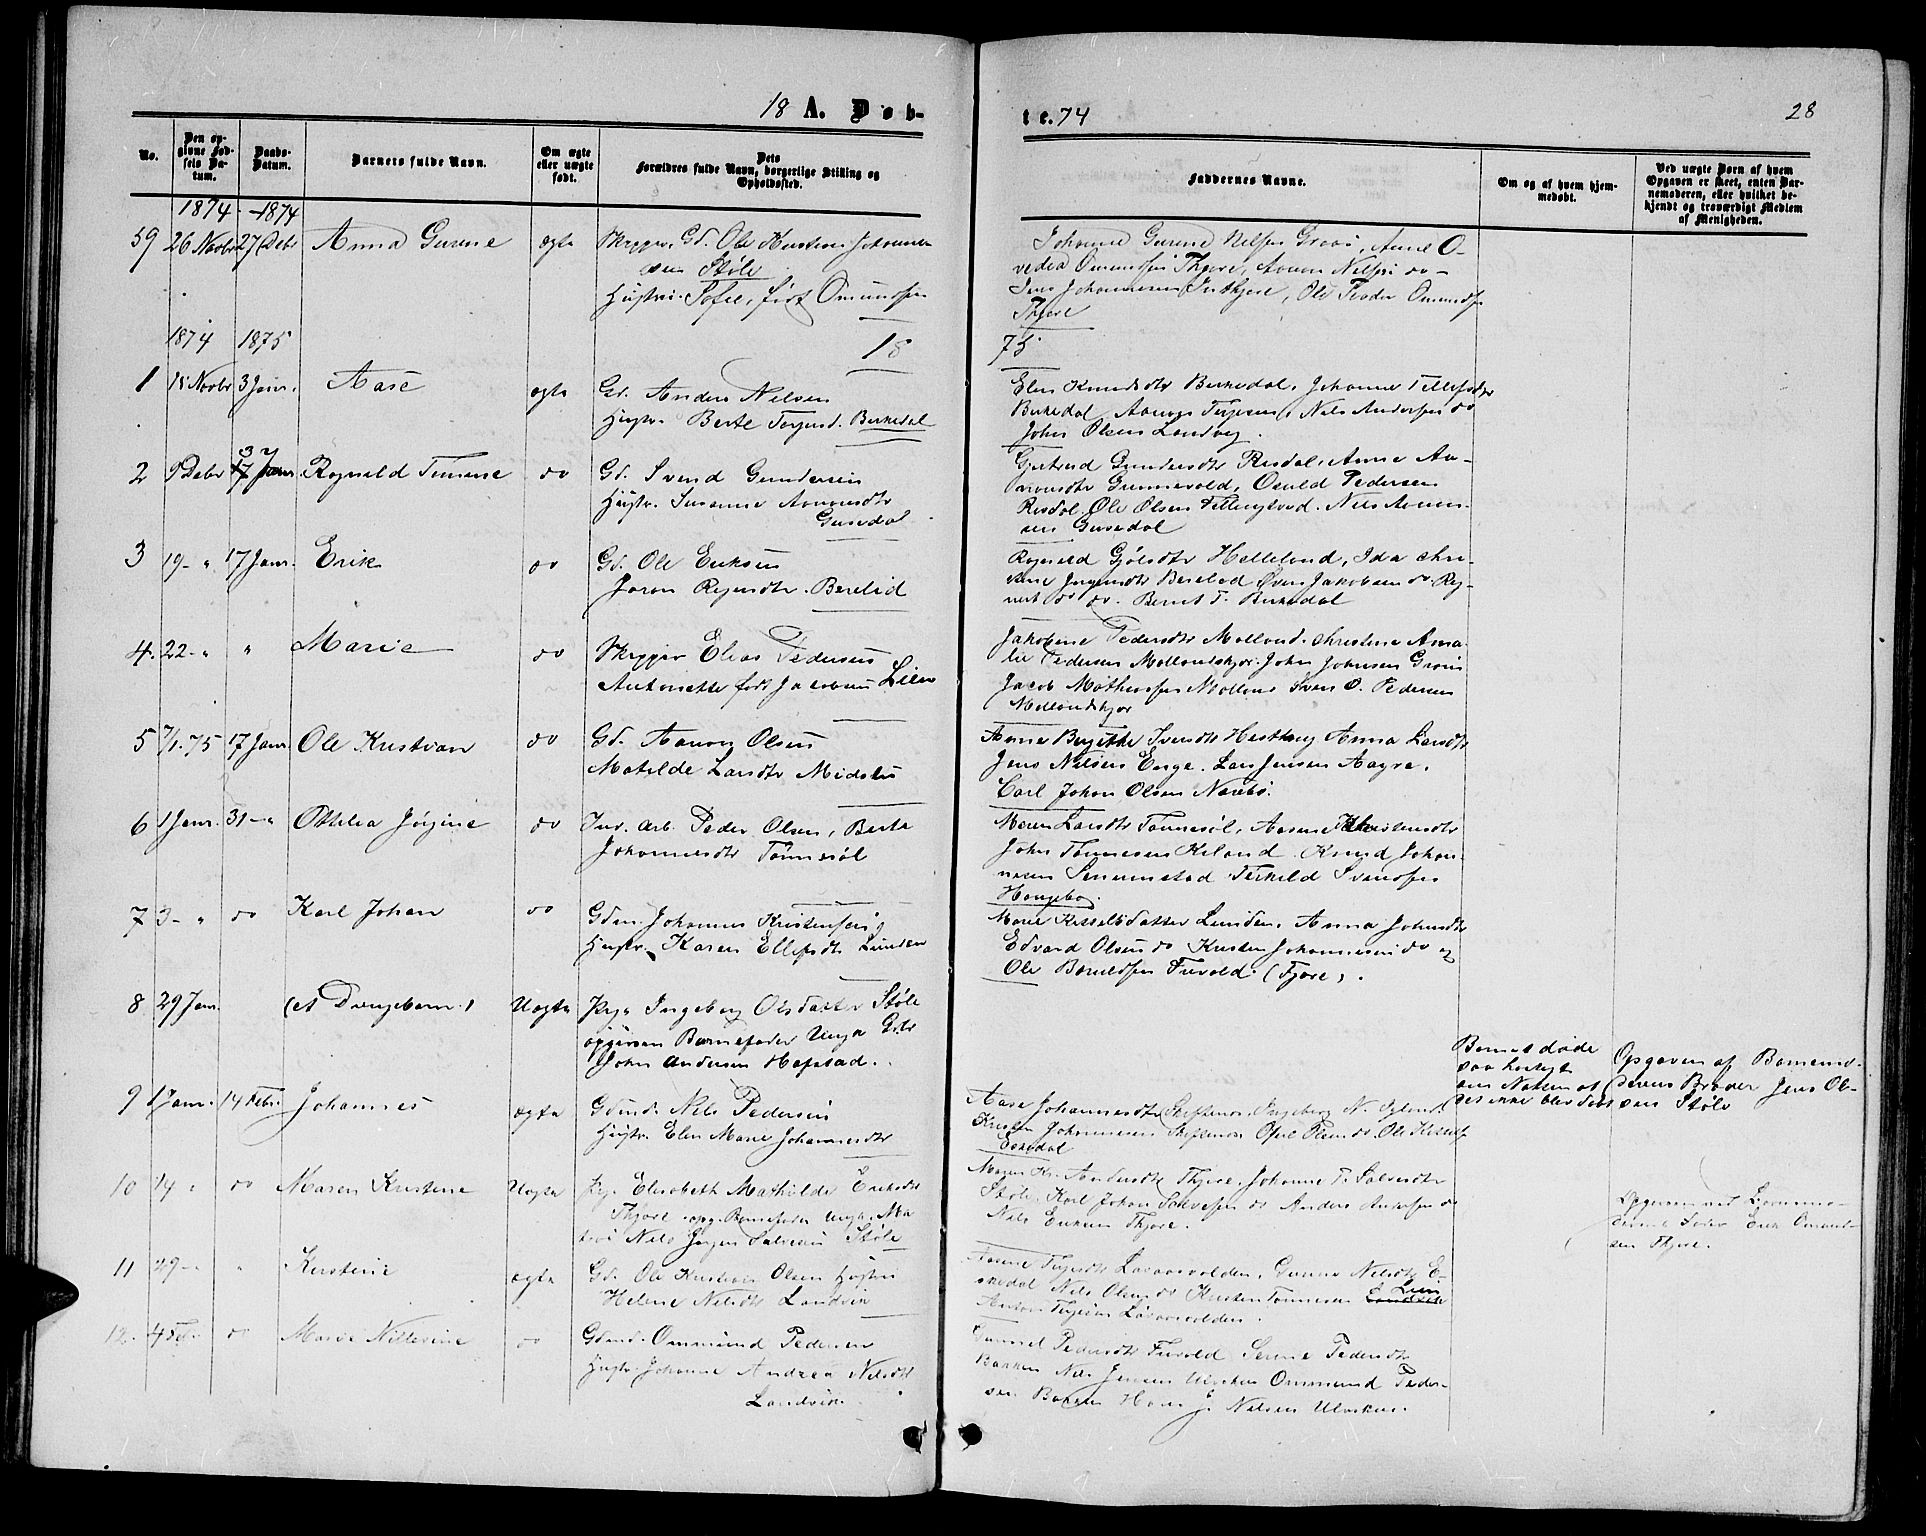 18 A. Døb-
te. 74
28
No.
Den opgivne Fødsels Datum.
Daabs-Datum.
Barnets fulde Navn.
Om ægte eller uægte født.
Dets Forældres fulde Navn, borgerlige Stilling og Opholdssted.
Faddernes Navne.
Om og af hvem hjemmedøbt.
Ved uægte Børn af hvem Opgaven er skeet, enten Barnemoderen, eller hvilket bekjendt og troværdigt Medlem af Menigheden.
1874 - 1874
59 26 Novbr 27 Debr Anna Gurine ægte Gd. Ole Kristian Johannes-
sen Støle
Hustru Sofie, født Omundsen
Johanne Gurine Nelsen Groos, Anne O-
vedia Omundsen Thjore, Aanon Nelsen do -
Jens Johannesen Inthjore, Ole Teodor Omundsen
Thjore
1874 1875
18
75
1 18 Novbr 3 Janr. Aase ægte Gd. Anders Nilsen
Hustr. Berte Terjesd. Birkedal
Elen Knudsdtr Birkedal, Johanne Tellefsdtr
Birkedal, Aanon Terjesen, Nils Andersen do
John Olsen Landvig.
2 9 Debr 17 Janr. Rognald Tomine do Gd. Svend Gundersen
Hustr. Susanne Aanonsdtr
Gusedal
Gjertrud Gundersdtr Risdal, Anne Aa-
nonsdtr Grummevold, Osuld Pedersen
Risdal, Ole Olsen, Nils Aanon-
sen Gusedal
3 19 - " 17 Janr. Erik do Gd. Ole Eriksen
Joron Rejersdtr. Berelid
Helleland, Ida
Jørgensdtr Berelid Jakobsen do
Bernt T. Birkedal
4. 22 - " " Marie do Elias Pedersen
Antonette født Jacobsen Lien
Jakobine Pedersdtr Molland, Christine Ama-
lie Pedersen Mollandskjær, John Johnsen Groos
Jacob Mathiesen Molland Sven O. Pedersen
Mollandskjær
5 7/1. 75 17 Janr. Ole Kristian do Gd. Aanon Olsen
Matilde Larsdtr Midslet
Anne Birgitte Svensdtr Hesthag Anna Larsdtr
Jens Nilsen Enge. Lars Jensen Aagre.
Carl Johan Olsen Narebø.
6 1 Janr. 31 - " Othilia Jørgine do Inr. Arb. Peder Olsen, Berte
Johannesdtr Tønnesøl
Maren Larsdtr Tønnesøl, Aasne Kristensdtr
John Tønnesen Kiland. Knud Johan-
nesen Sennumstad Terkild Svendsen
Haugebog.
7 3 - " do Karl Johan do Gdm. Johannes Kristensen
Hustr. Karen Ellefsdtr Lunden
Marie Kittelsdatter Lunden, Anna Johnsdtr
Edvard Olsen do Kristen Johannesen do og
Ole Boruldsen Fuvold (Fjære).
8 29 Janr. (et Drengebarn.) Uægte Pige Ingeborg Olsdatter Støle
opgiven Barnefader Ungk. Gdr
John Andersen Hafstad.
Barnet døde
saa hastigt
om Natten at
det ikke blev døbt
Opgaven af Barnemo-
derens Broder Jens Ol-
sen Støle
9 1 Janr. 14 Febr. Johannes ægte Gdmd. Nels Pedersen
Hustr. Elen Marie Johannesdtr
Aase Johannesdtr Skiftenes, Ingeborg N.
Kristen Johannesen Skiftenes Ole Kittels
Eskedal
10 14 " do Maren Kristine Uægte Pg. Elisabeth Mathilde Eriksdtr
Thjore opg. Barnefader Ungk. Ma-
tros Nils Jørgen Salvesen Støle
Maren Kr. Andersdtr Thjore. Johanne T. Salvesdtr
Støle. Karl Johan Salvesen do Anders Andersen do
Nils Eriksen Thjore.
Opgiven ved Barnemo-
derens Fader Erik Omund-
sen Thjore.
11 29 - " " Kirstene ægte Gd. Ole Kristian Olsen Hustru
Helene Nilsdtr Landvik
Aanne Terjesdtr Lavaasvolden. Gunne Nilsdtr E-
skedal Nils Olsen do Kristen Tønnesen Lien
Anton Terjesen Lavaasvolden.
12. 4 Feb. do Marie Nillesine do Gdmd. Ommund Pedersen
Hustr. Johanne Andrea Nilsdtr
Landvik.
Gunnel Pedersdtr Fuvold Serine Pedersdtr
Bakken Nils Jensen Ulvskar Ommund Peder-
sen Bakken Hans J. Nilsen Ulvskar.